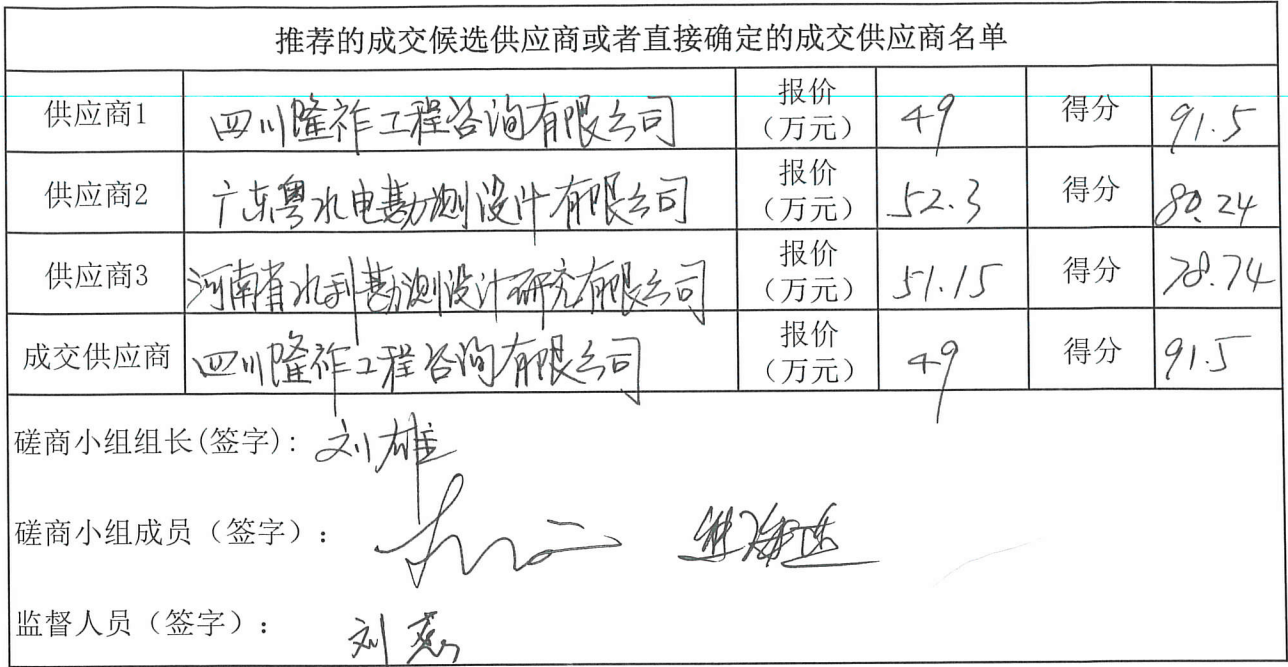 推荐的成交候选供应商或者直接确定的成交供应商名单
供应商1 四川隆祚工程咨询有限公司 报价（万元） 49 得分 91.5
供应商2 广东粤水电勘测设计有限公司 报价（万元） 52.3 得分 80.24
供应商3 河南省水利勘测设计研究有限公司 报价（万元） 51.15 得分 78.74
成交供应商 四川隆祚工程咨询有限公司 报价（万元） 49 得分 91.5
磋商小组组长(签字)： 刘雄
磋商小组成员（签字）：
监督人员（签字）： 刘